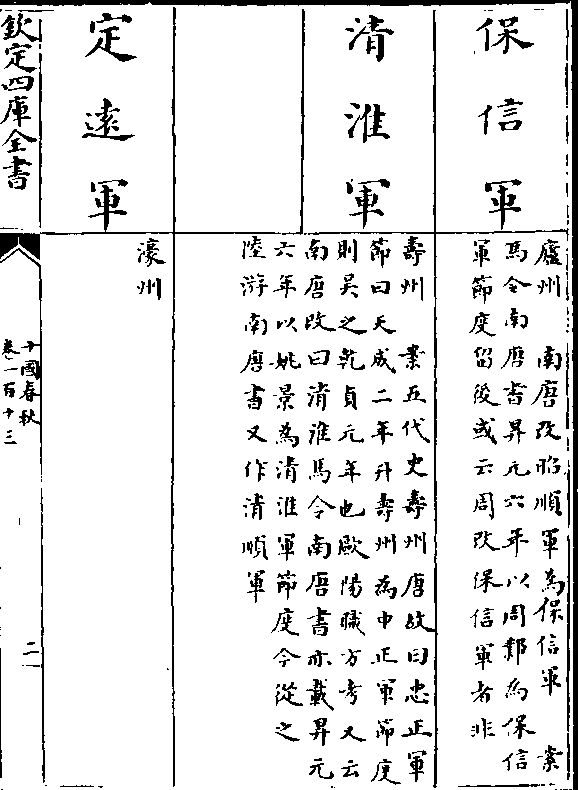 保信軍
廬州　南唐改昭順軍為保信軍　案
馬令南唐書昇元六年以周鄴為保信
軍節度留後或云周改保信軍者非
清淮軍
壽州　案五代史壽州唐故曰忠正軍
節曰天成二年升壽州為中正軍節度
則吴之乾貞元年也歐陽職方考又云
南唐改曰清淮馬令南唐書亦載昇元
六年以姚景為清淮軍節度今從之
陸游南唐書又作清順軍
定遠軍
濠州
欽定四庫全書
十國春秋
卷一百十三
二